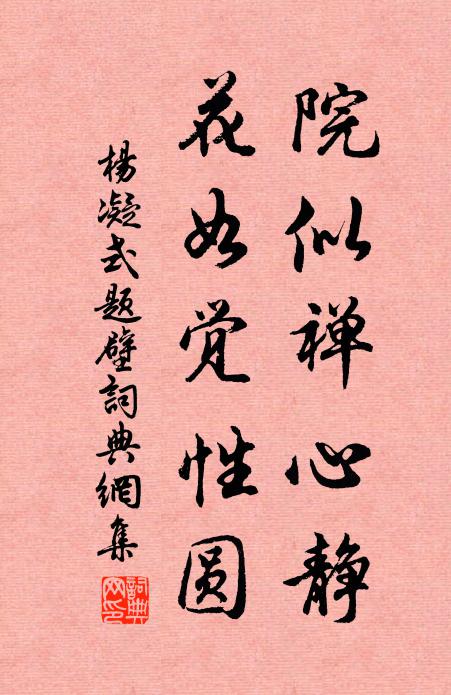 院似禅心静
花如觉性圆
楊凝式题壁詞典網集
詞典網印